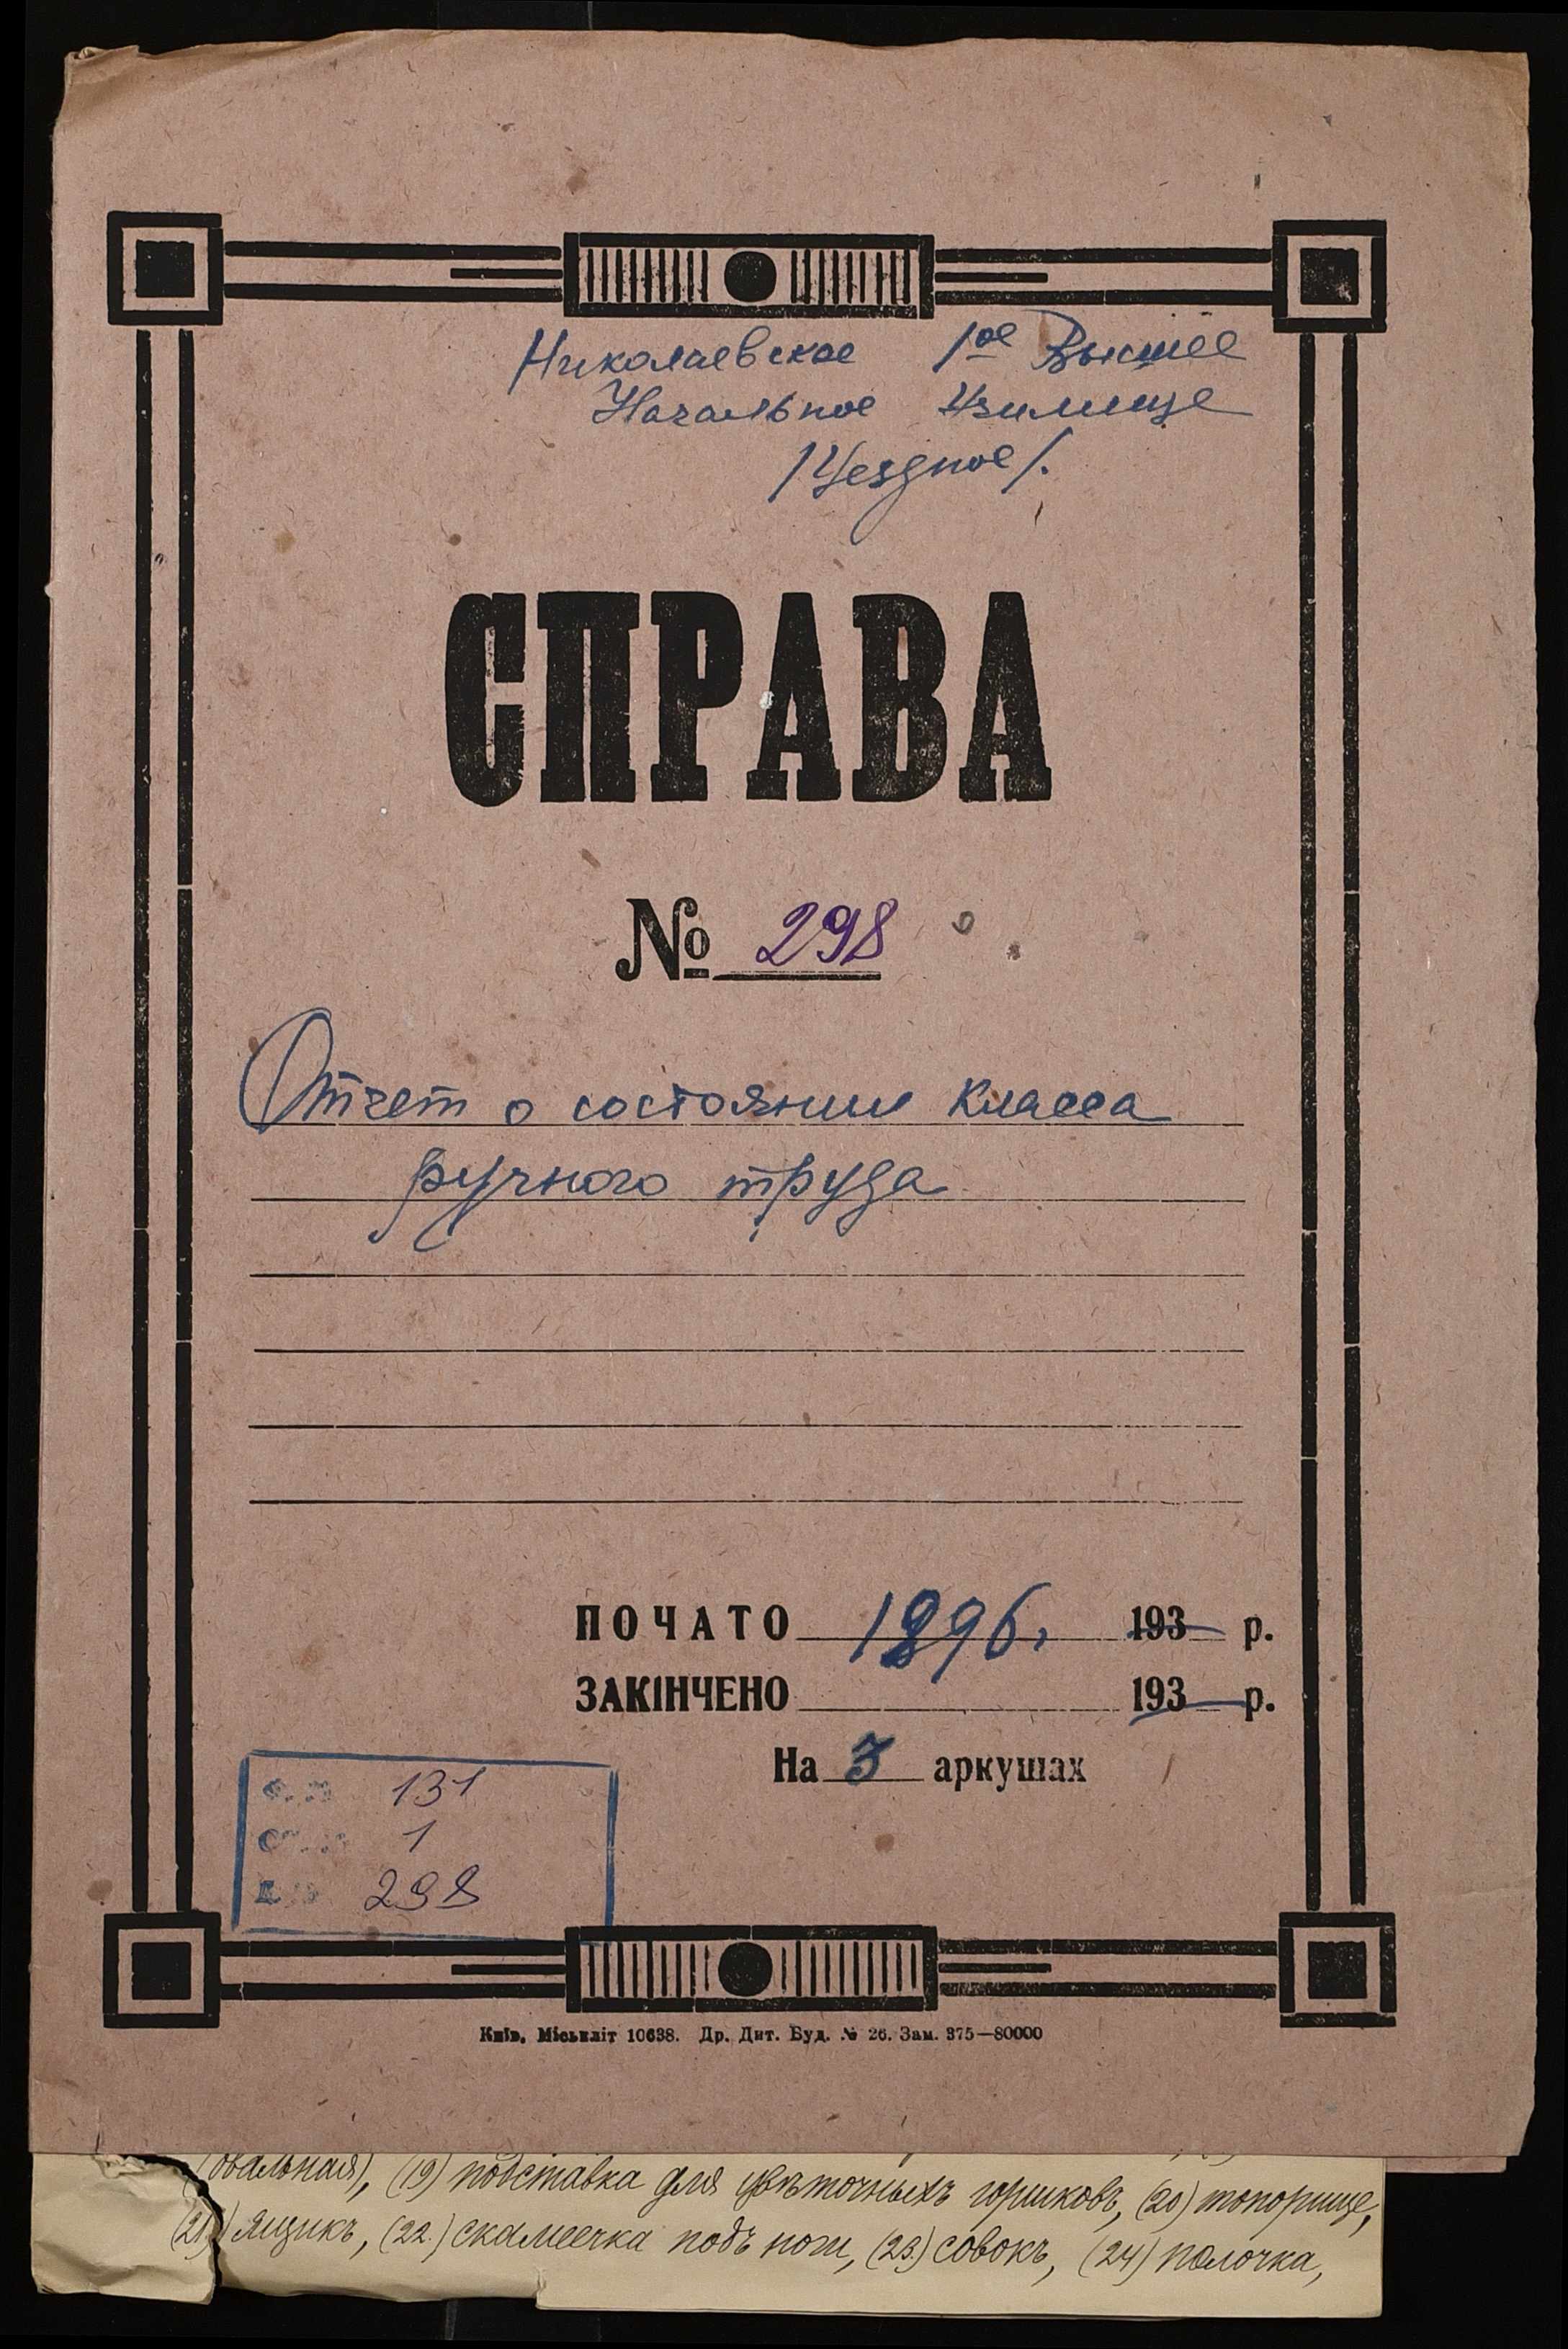 Николаевское 1ое Высшее
Начальное Училище
/Уездное/.
СПРАВА
№ 298
Отчет о состоянии класса
ручного труда
ПОЧАТО 1896, 193 р.
ЗАКІНЧЕНО 193 р.
На 3 аркушах
131
1
298
Київ, Міськліт 10638. Др. Дит. Буд. № 26. Зам. 375—80000
овальная), (19) подставка для цвѣточныхъ горшковъ, (20) топорище,
(21) ящикъ, (22.) скамеечка подъ ноги, (23.) совокъ, (24) полочка,